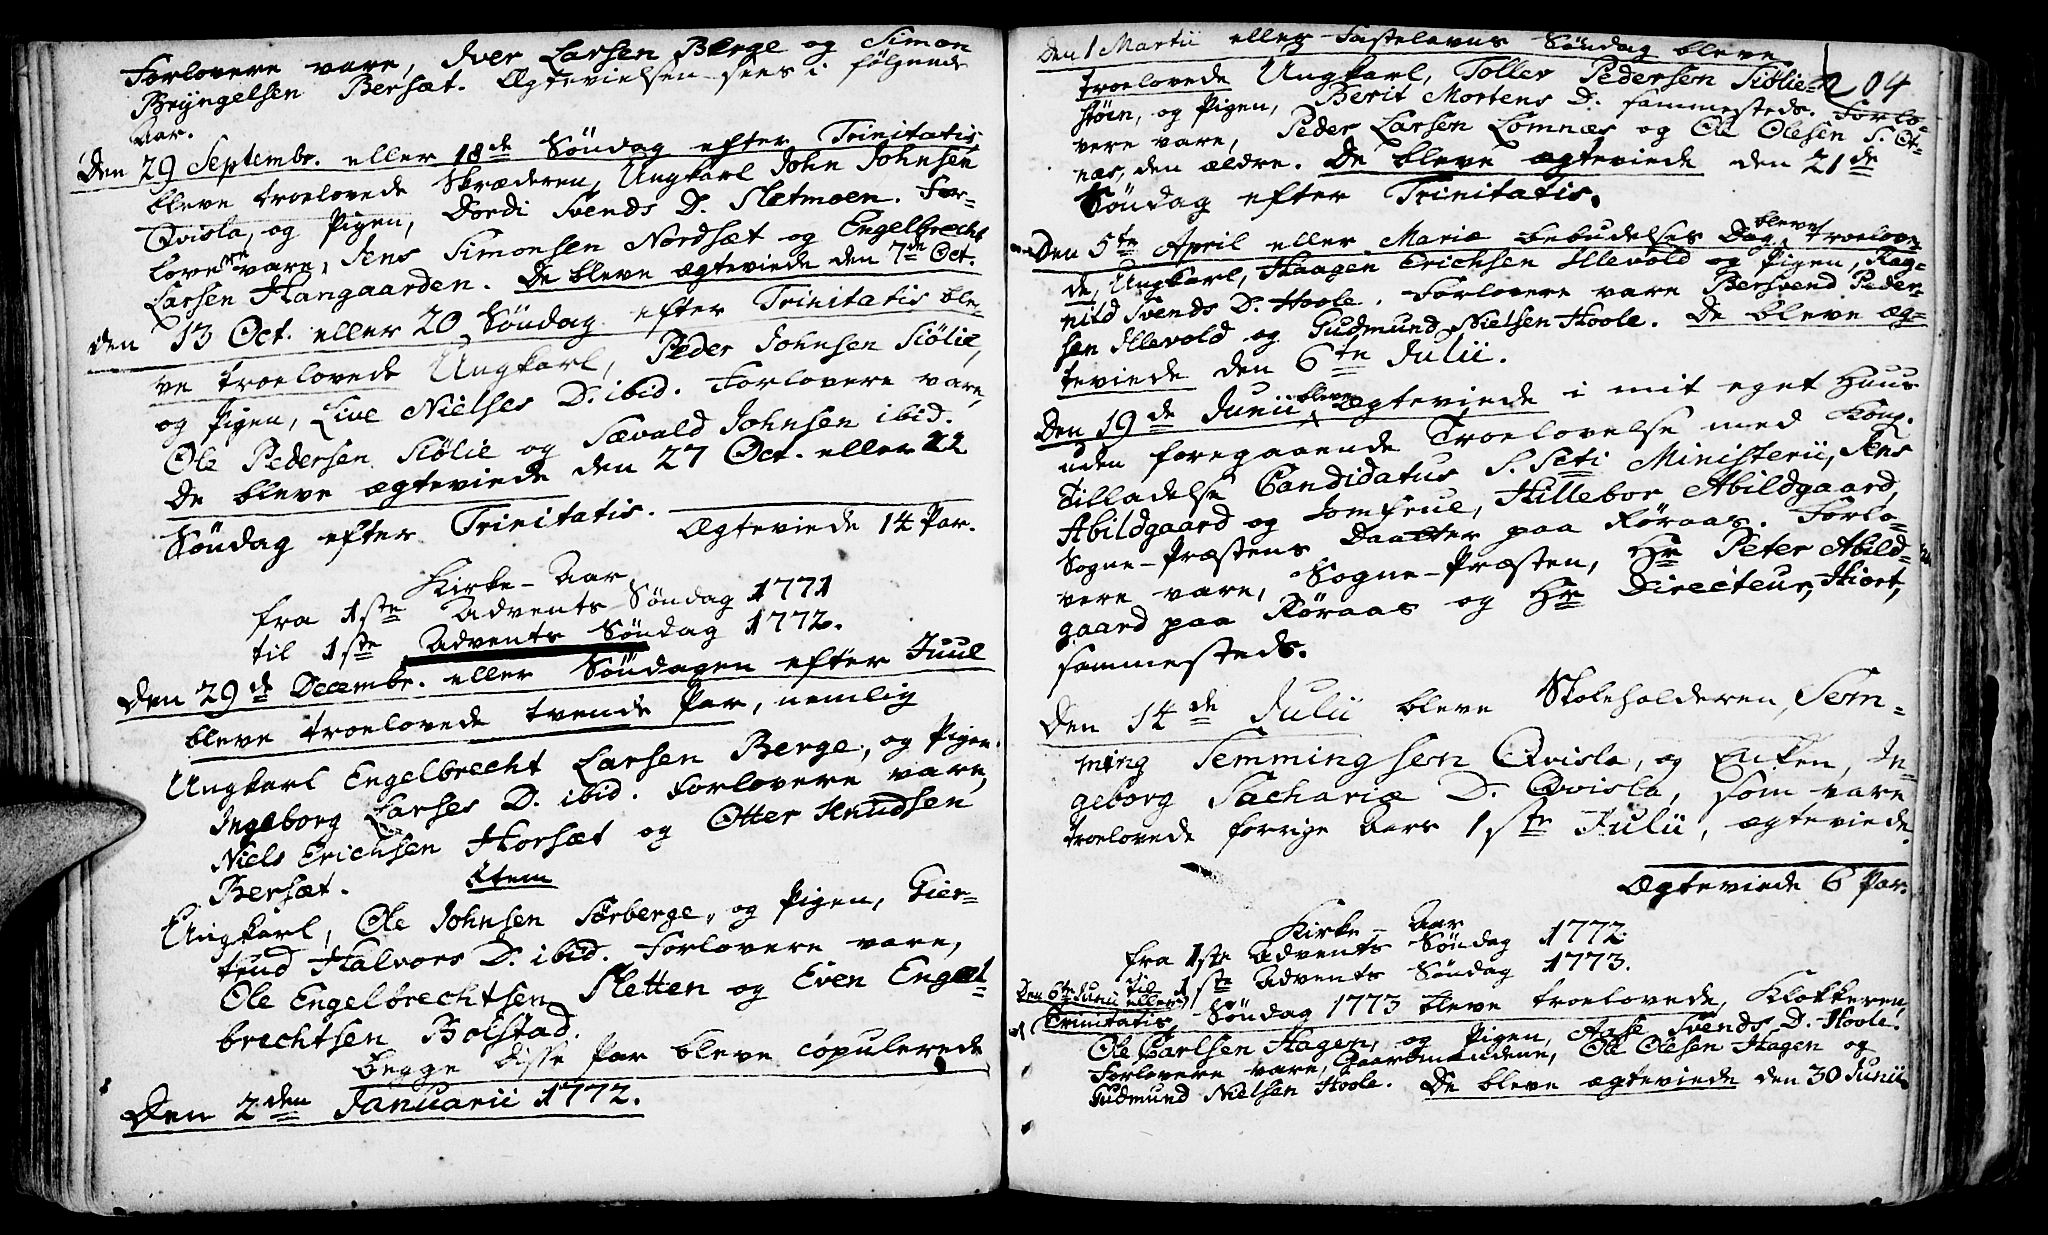 Forlovere vare, Iver Larsen Berge og Simon
Bryngelsen Bersæt. Ægtevielsen sees i følgende
Aar.
Den 29 Septembr. eller 18de Søndag efter Trinitatis
bleve troelovede Skræderen, Ungkarl John Johnsen
Qvisla, og Pigen, Dordi Svends D. Sletmoen. For-
lovere vare, Jens Simonsen Nordsæt og Engelbrecht
Larsen Hangaarden. De bleve ægteviede den 7de Oct.
Den 13 Oct. eller 20 Søndag efter Trinitatis ble-
ve troelovede Ungkarl, Peder Johnsen Siølie,
og Pigen, Live Nielses D. ibid. Forlovere vare,
Ole Pedersen Siølie og Sævald Johnsen ibid.
De bleve ægteviede den 27 Oct. eller 22
Søndag efter Trinitatis.
Ægteviede 14 Par.
Kirke-Aar
fra 1ste Advents Søndag 1771
til 1ste Advents Søndag 1772.
Den 29de Decembr. eller Søndagen efter Juul
bleve troelovede tvende Par, nemlig
Ungkarl Engelbrecht Larsen Berge, og Pigen
Ingeborg Larses D. ibid. Forlovere vare,
Niels Erichsen Horsæt og Otter Knudsen
Bersæt. Item
Ungkarl, Ole Johnsen Sørberge, og Pigen, Gier-
trud Halvors D. ibid. Forlovere vare,
Ole Engelbrechtsen Sletten og Even Engel-
brechtsen Bolstad.
Begge disse Par bleve copulerede
Den 2den Januarii 1772.
Den 1 Martii eller Fastelavns Søndag bleve
204
troelovede Ungkarl, Toller Pedersen Siølie-
støen, og Pigen, Berit Mortens D. sammesteds. Forlo-
vere vare, Peder Larsen Lomnæs og Ole Olesen S. Ot-
næs, den ældre. De bleve ægteviede den 21de
Søndag efter Trinitatis.
Den 5te April eller Mariæ Bebudelses Dag, bleve troelove-
de, Ungkarl, Haagen Erichsen Illevold og Pigen, Rag-
nild Svends D. Hoole. Forlovere vare Bersvend Peder-
sen Illevold og Gudmund Nielsen Hoole. De bleve æg-
teviede den 6te Julii.
Den 19de Junii bleve Ægteviede i mit eget Huus
uden foregaaende Troelovelse med Kong.
Tilladelse Candidatus S. Scti Ministerii, Jens
Abildgaard og Jomfrue, Hillebor Abildgaard,
Sogne-Præstens Daatter paa Røraas. Forlo-
vere vare, Sogne-Præsten, Hr Peter Abild-
gaard paa Røraas og Hr Directeur, Hiort,
sammesteds.
Den 14de Julii bleve Skoleholderen, Sem-
ming Semmingsen Qvisla, og Enken, In-
geborg Sachariæ D. Qvisla, som vare
troelovede forrige Aars 1ste Julii, ægteviede.
Ægteviede 6 Par.
Kirke-Aar
fra 1ste Advents Søndag 1772
til 1ste Advents Søndag 1773.
Den 6te Junii eller
Trinitatis Søndag 1773 bleve troelovede, Klokkeren,
Ole Carlsen Hagen, og Pigen, Aase Svends D. Hoole.
Forlovere vare, Gaardmændene, Ole Olesen Hagen og
Gudmund Nielsen Hoole. De bleve ægteviede den 30 Junii